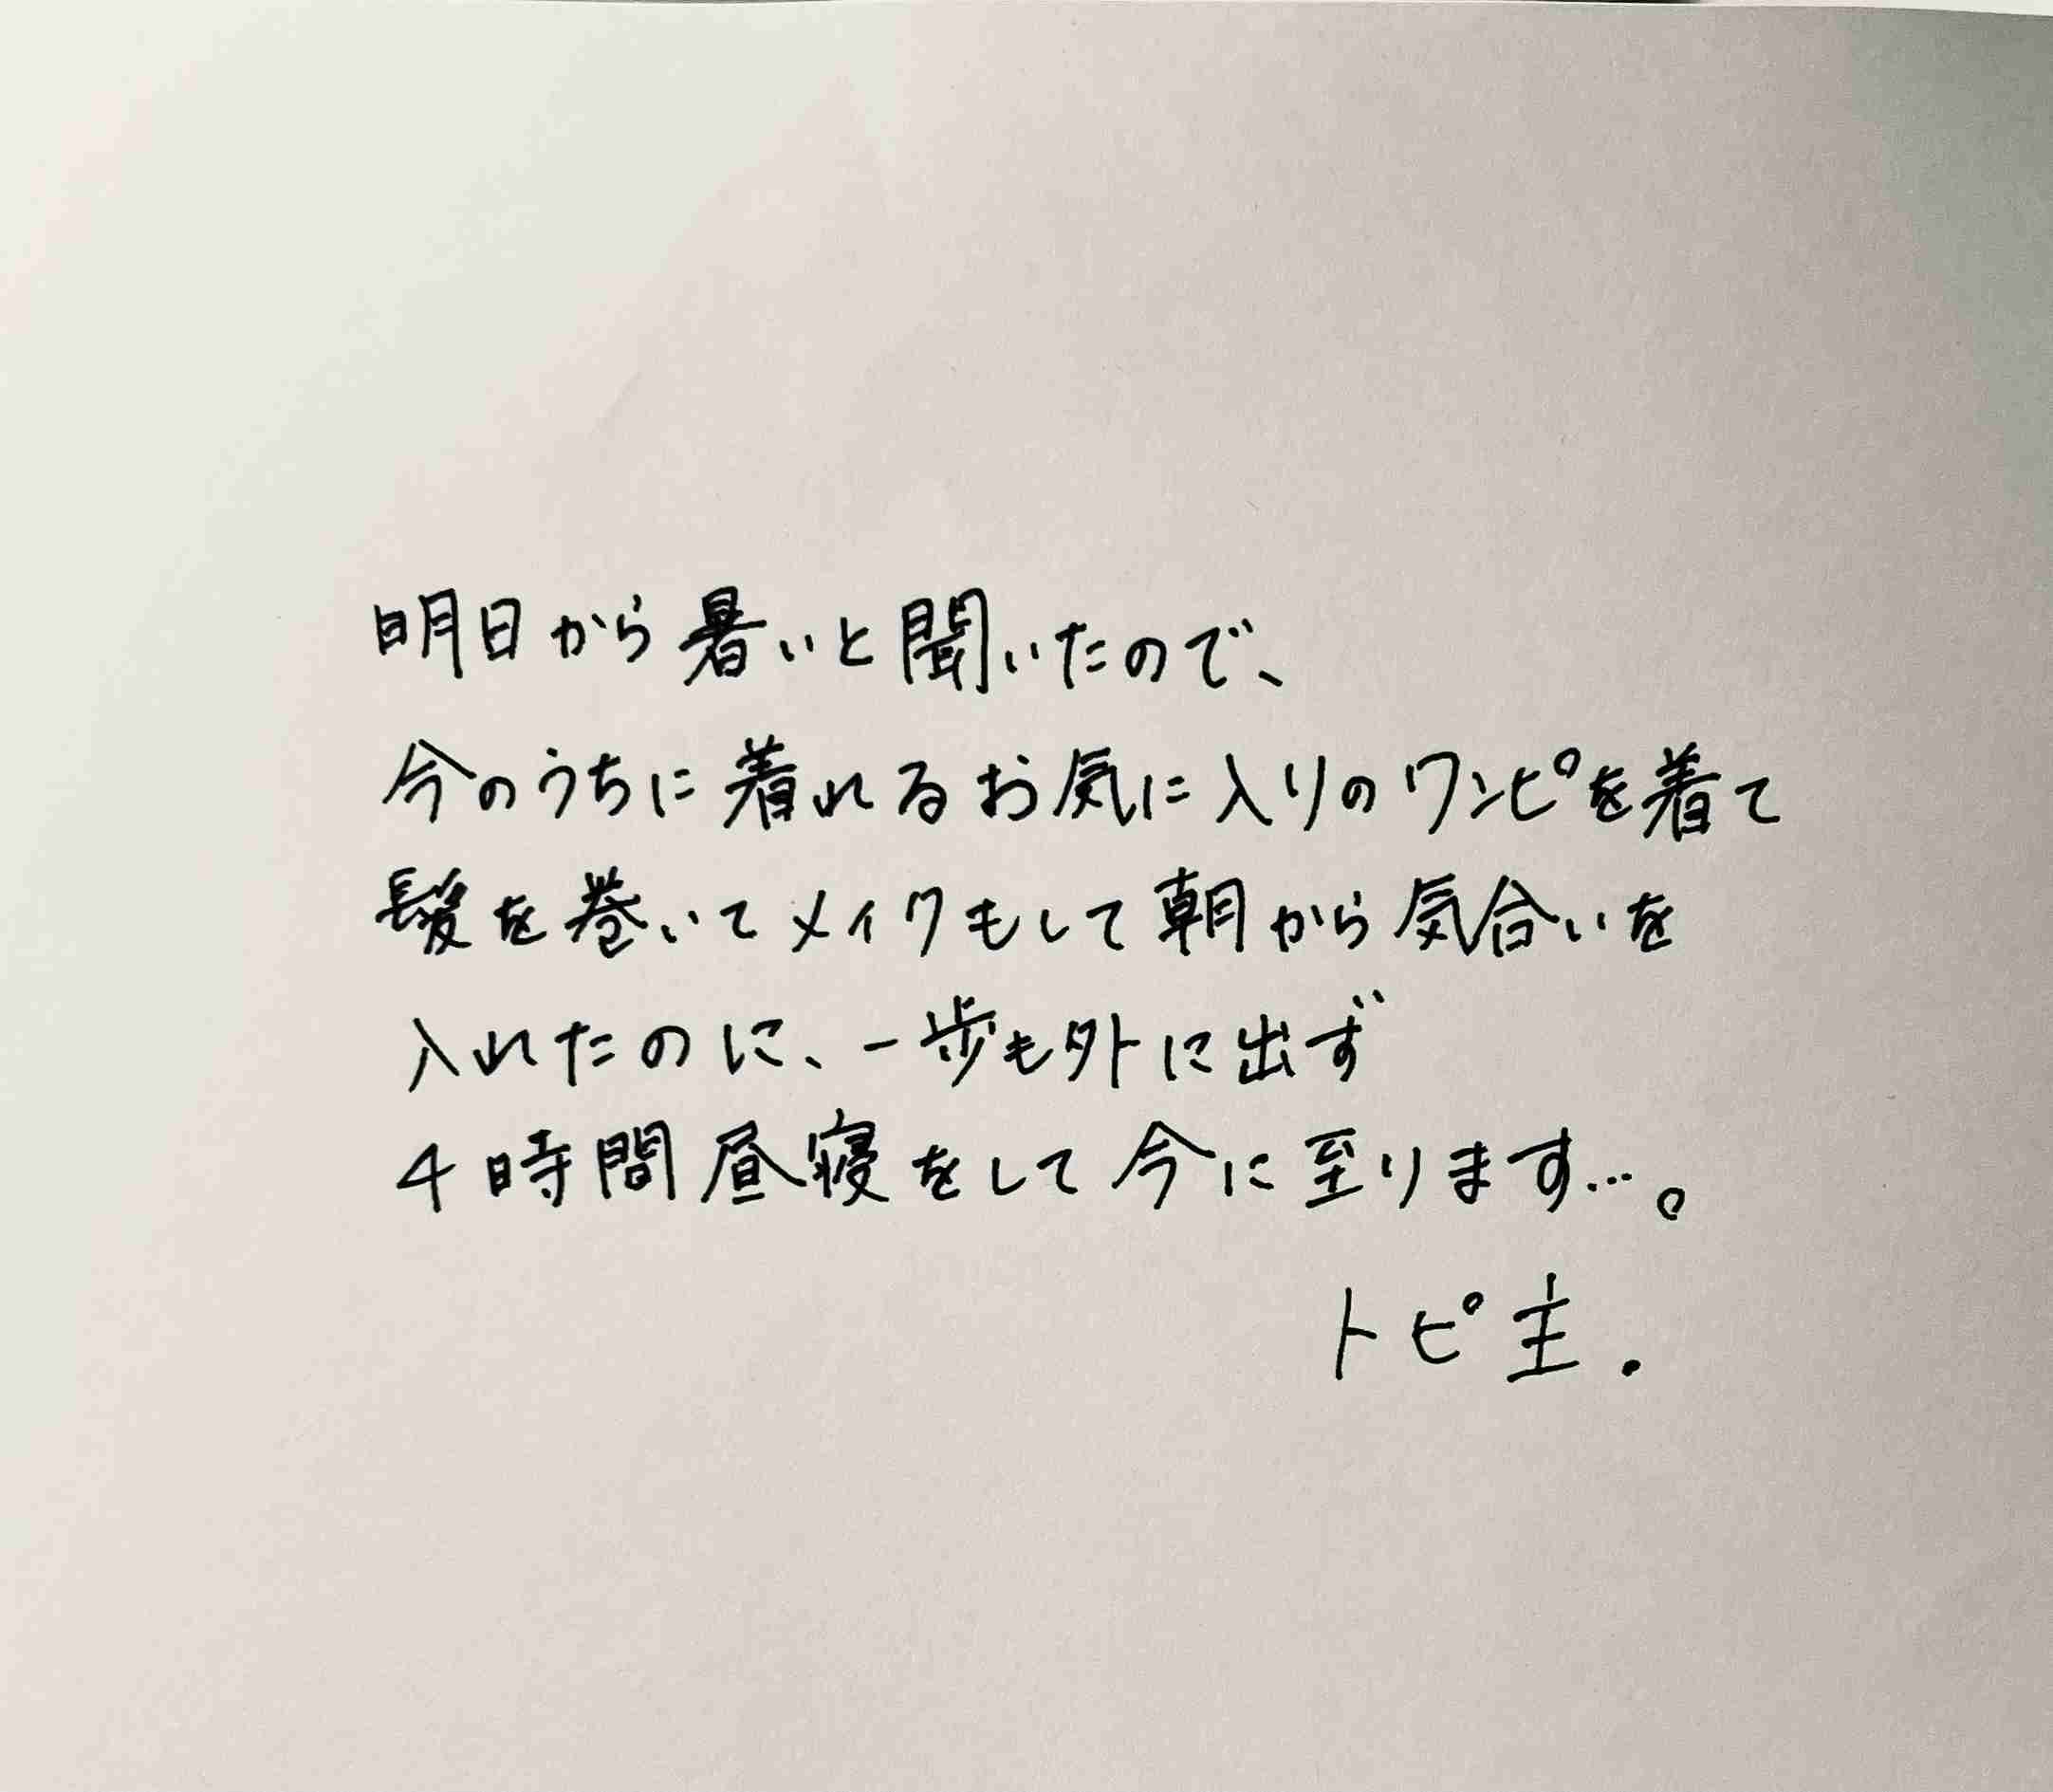 明日から暑いと聞いたので、
今のうちに着れるお気に入りのワンピを着て
髪を巻いてメイクもして朝から気合いを
入れたのに、一歩も外に出ず
4時間昼寝をして今に至ります…。
トピ主.